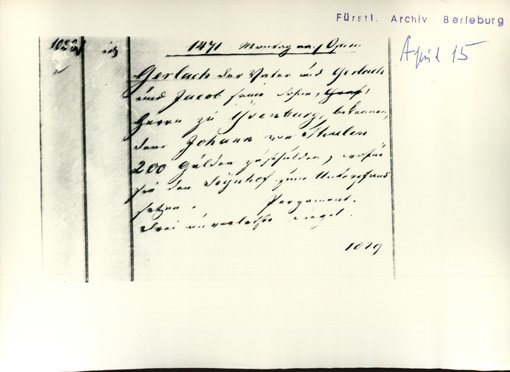 Fürstl. Archiv Berleburg
April 15
1471 Montag nach Ostern
Gerlach der Vater und Gerlach
und Jacob seine Söhne, Graf
Herrn zu Ysenburg, bekennen,
dem Johann von
200 Gulden zu schulden, wofür
sie den zum Unterpfand
setzen. Pergament.
Drei unverletzte Siegel.
1019